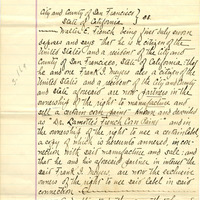 City and County of San Francisco }
State of California } ss.
Walter E. French being first duly sworn
deposes and says that he is a citizen of the
United States and a resident of the City and
County of San Francisco, State of California that
he and one Frank I. Meyers also a citizen of the
United States and a resident of the City and County
and State aforesaid are now partners in the
ownership of the right to manufacture and
sell a certain corn paint known and described
as "Dr. Ramottes French Corn Paint" and in
the ownership of the right to use a certain label
a copy of which is hereunto annexed, in con-
nection with said manufacture and sale and
that he and his aforesaid partner in interest the
said Frank I. Meyers, are now the exclusive
owners of the right to use said label in said
connection.